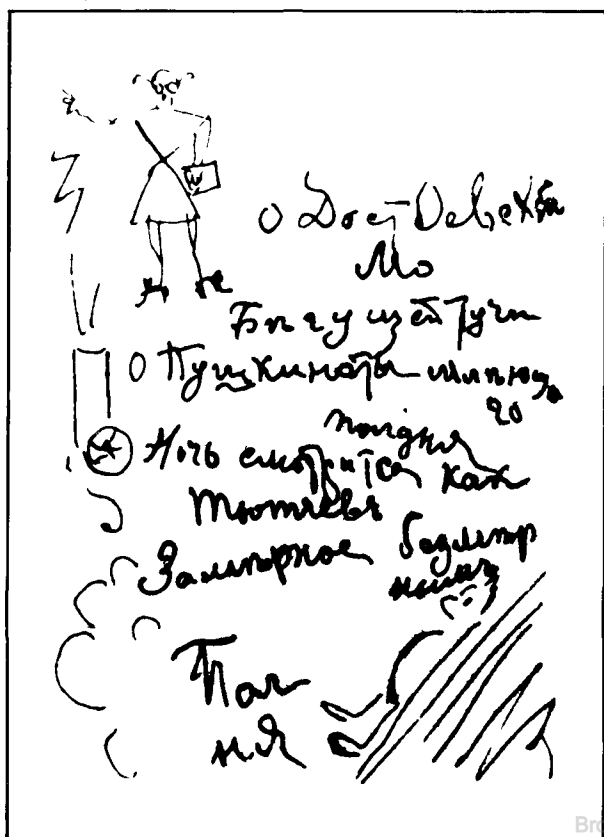 О ДостОевскій
Мо
Бѣгущей тучи
О Пушкиноты млѣюща
го
полдня
Ночь смотрится как
Тютчевъ
Замѣрное безмѣр
нымъ
Пол
ня
Bro